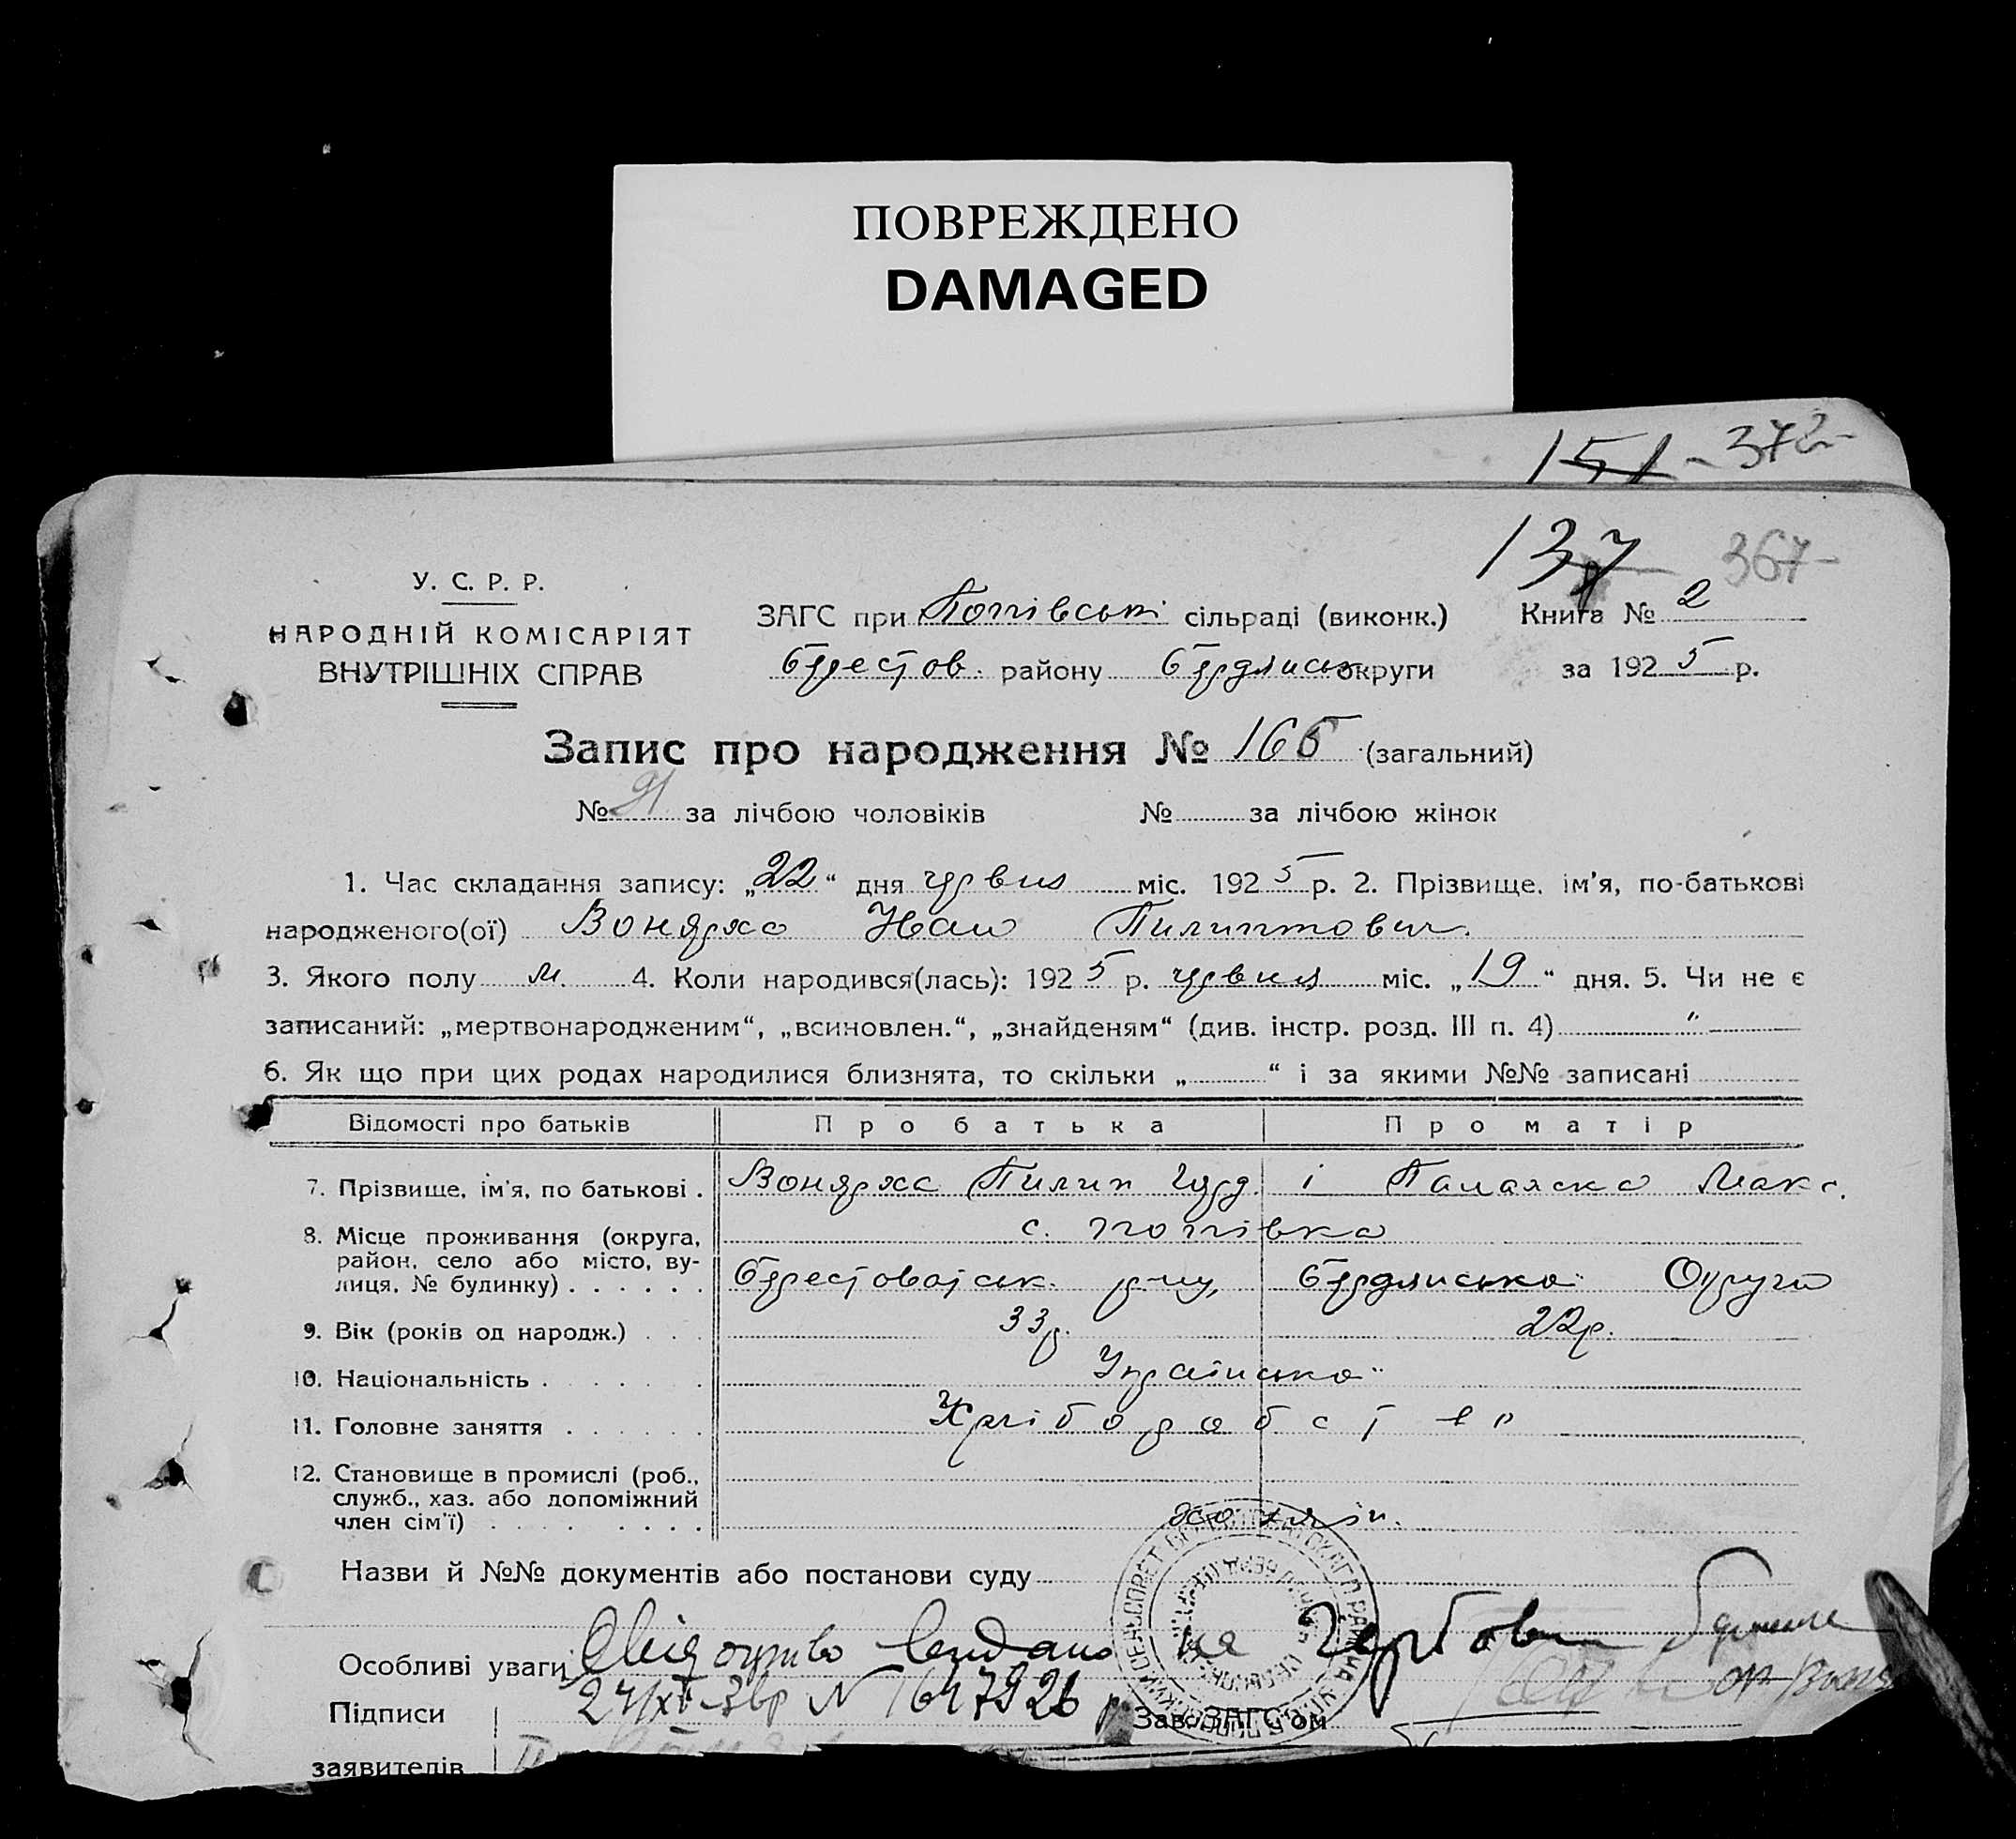 ПОВРЕЖДЕНО
DAMAGED
151 - 372-
137 367-
У. С. Р. Р.
НАРОДНІЙ КОМІСАРІЯТ
ВНУТРІШНІХ СПРАВ
ЗАГС при Попівські сільраді (виконк.) Книга № 2
Берестов. району Бердянськ округи за 1925 р.
Запис про народження № 165 (загальний)
№ 91 за лічбою чоловіків № за лічбою жінок
1. Час складання запису: „22“ дня червня міс. 1925 р. 2. Прізвище, ім’я, по-батькові
народженого(ої) Вонярха Иван Пилиппович.
3. Якого полу м. 4. Коли народився(лась): 1925 р. червня міс. „19“ дня. 5. Чи не є
записаний: „мертвонародженим“, „всиновлен.“, „знайденям“ (див. інстр. розд. III п. 4) "
6. Як що при цих родах народилися близнята, то скільки „ “ і за якими №№ записані
Відомості про батьків Про батька Про матір
7. Прізвище, ім’я, по батькові . Вонярха Пилип і Палажка Макс.
8. Місце проживання (округа, с. Попівка
район, село або місто, ву-
лиця, № будинку) . . . . . . Берестоватськ. р-ну, Бердянської Округи
9. Вік (років од народж.) . . . 33р. 22р.
10. Національність . . . . . Українська
11. Головне заняття . . . . . . Хліборобство
12. Становище в промислі (роб.,
служб., хаз. або допоміжний
член сім’ї) . . . . . . . . хазяїн.
Назви й №№ документів або постанови суду
Особливі уваги Свідоцтво видано на
24/XI-36р N 647926
Підписи Зав. ЗАГС’ом
заявителів